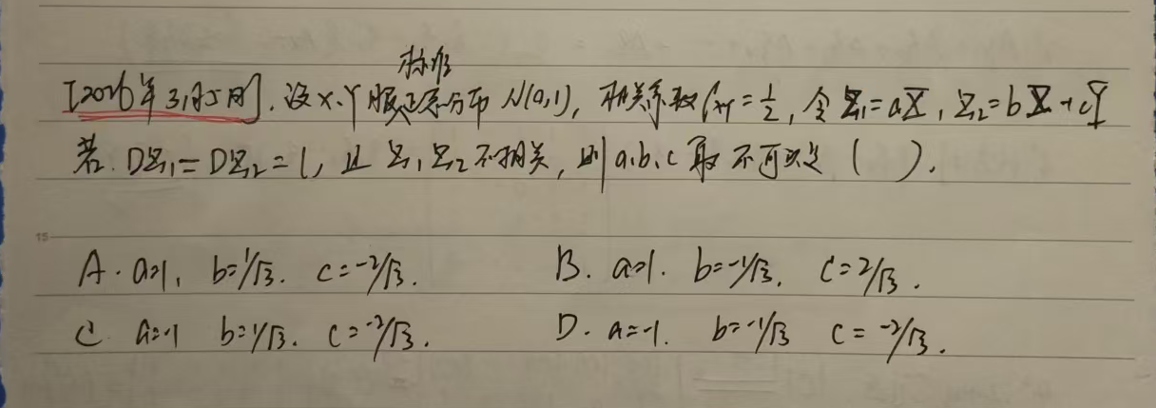 标准
[2026年3月5日]. 设X、Y服正态分布 N(0,1), 相关系数ρxy=1/2, 令 Z₁=aX, Z₂=bX+cY
若. DZ₁=DZ₂=1, 且 Z₁, Z₂不相关, 则a.b.c 取 不可以是 ( ).
15
A. a=1, b=1/√3. c=-2/√3. B. a=1. b=-1/√3, c=2/√3.
C a=-1 b=1/√3. c=-2/√3. D. a=-1. b=-1/√3 c=-2/√3.